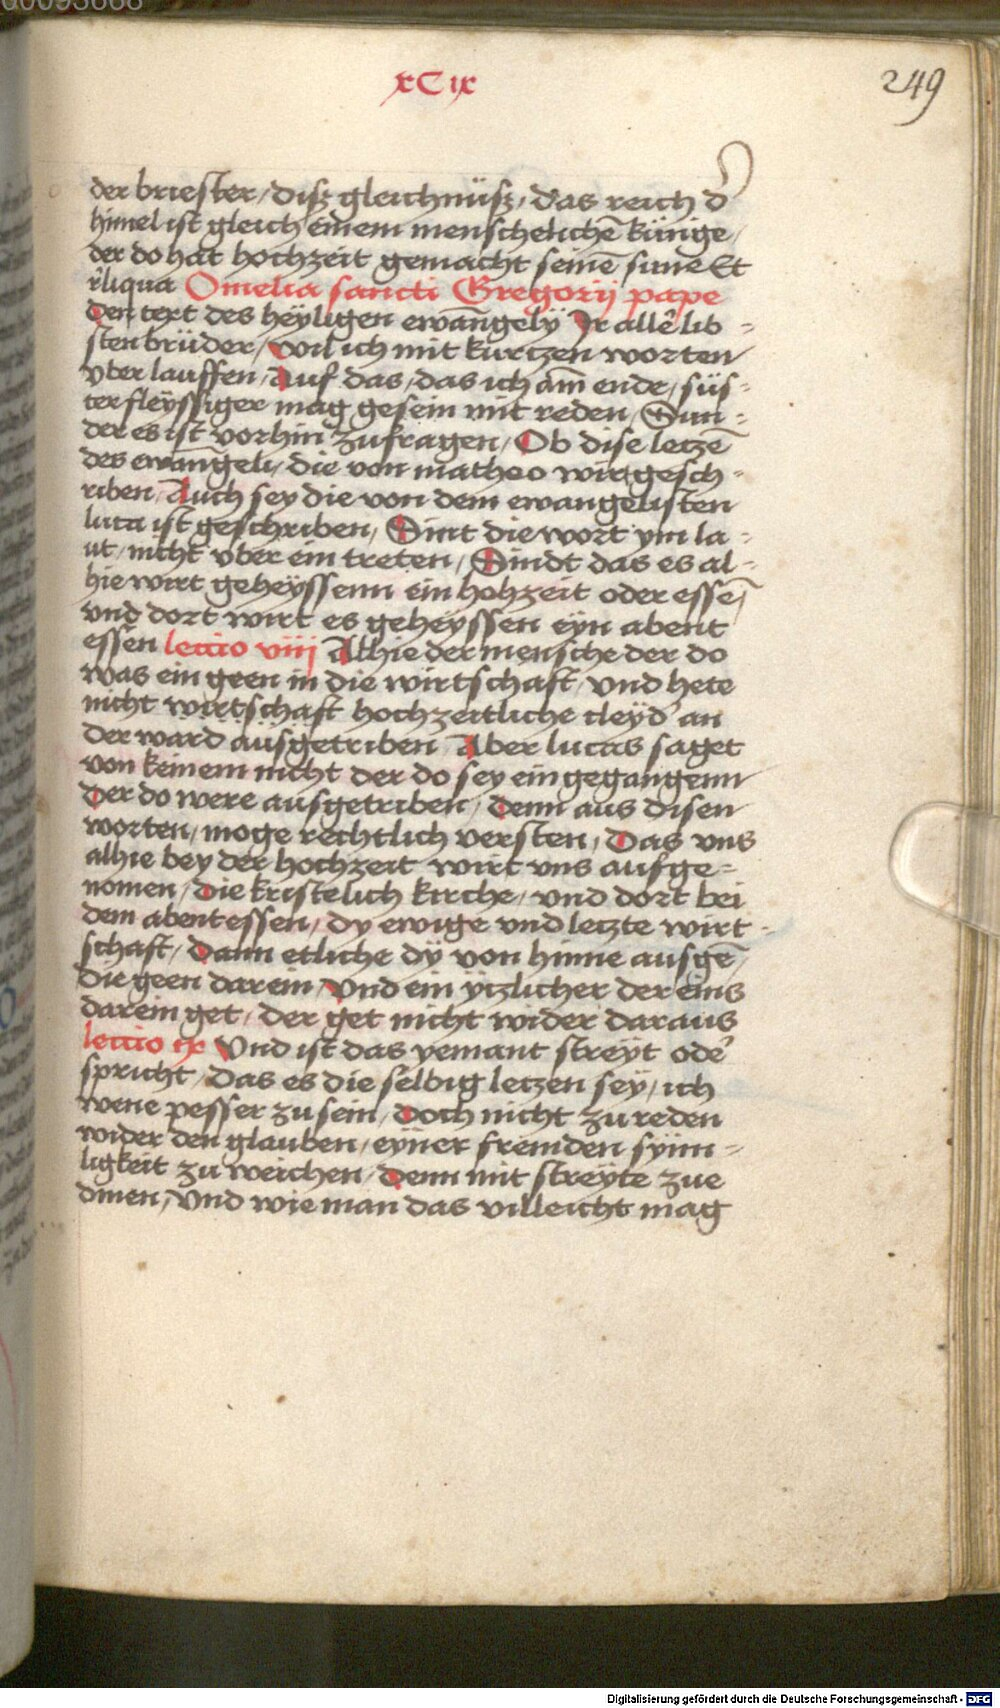 00093668
xC ix
249
der briester / disz gleichnüsz / das reich d̕
himel ist gleich einem menschelichē künige /
der do hat hochzeit gemacht seinē sune Et
rͥliqua Omelia sancti Gregorij pape
Den text des heyligen ewāngely Ir allē lib =
sten brüder / wil ich mit kurtzen worten
vber lauffen / Auf das / das ich am̄ ende / süs =
ter fleyssiger mag gesein mit reden / Sun =
der es ist vorhin zufragen / Ob dise letzē
des ewāngeli / die von matheo wirt gesch =
riben / Auch sey die von dem ewangelisten
luca ist geschriben / Sint die wort ym la =
ut / nicht vber ein treten / Sindt das es al =
hie wirt geheyssenn ein hohzeit oder essē /
vnd dort wirt es geheyssen eyn abent
essen lectio viii Alhie der mensche der do
was ein geen in die wirtschaft / vnd hete
nicht wirtschaft hochzeitliche cleyd̕ an
der ward aüsgetriben Aber lucas saget
von keinem nicht der do sey ein gegangenn
Der do were ausgetriben / Denn aus disen
worten / moge rechtlich versten / Das vns
alhie bey der hochzeit wirt vns aufge =
nomen / Die kristelich kirche / vnd dort bei
dem abent essen / dy ewige vnd letzte wirt =
schaft / Dann etliche dy von hinne ausgē /
die geen darein / Vnd ein ytzlicher der eins
darein get / der get nicht wider daraus
lectio ix Vnd ist das yemant streyt ode̕
spricht / Das es die selbig letzen sey / ich
wene pesser zu sein / Doch nicht zu reden
wider den glauben / eyner fremden synn =
ligkeit zu weichen / Denn mit streyte zue
dinen / Vnd wie man das villeicht mag
Digitalisierung gefördert durch die Deutsche Forschungsgemeinschaft - DFG